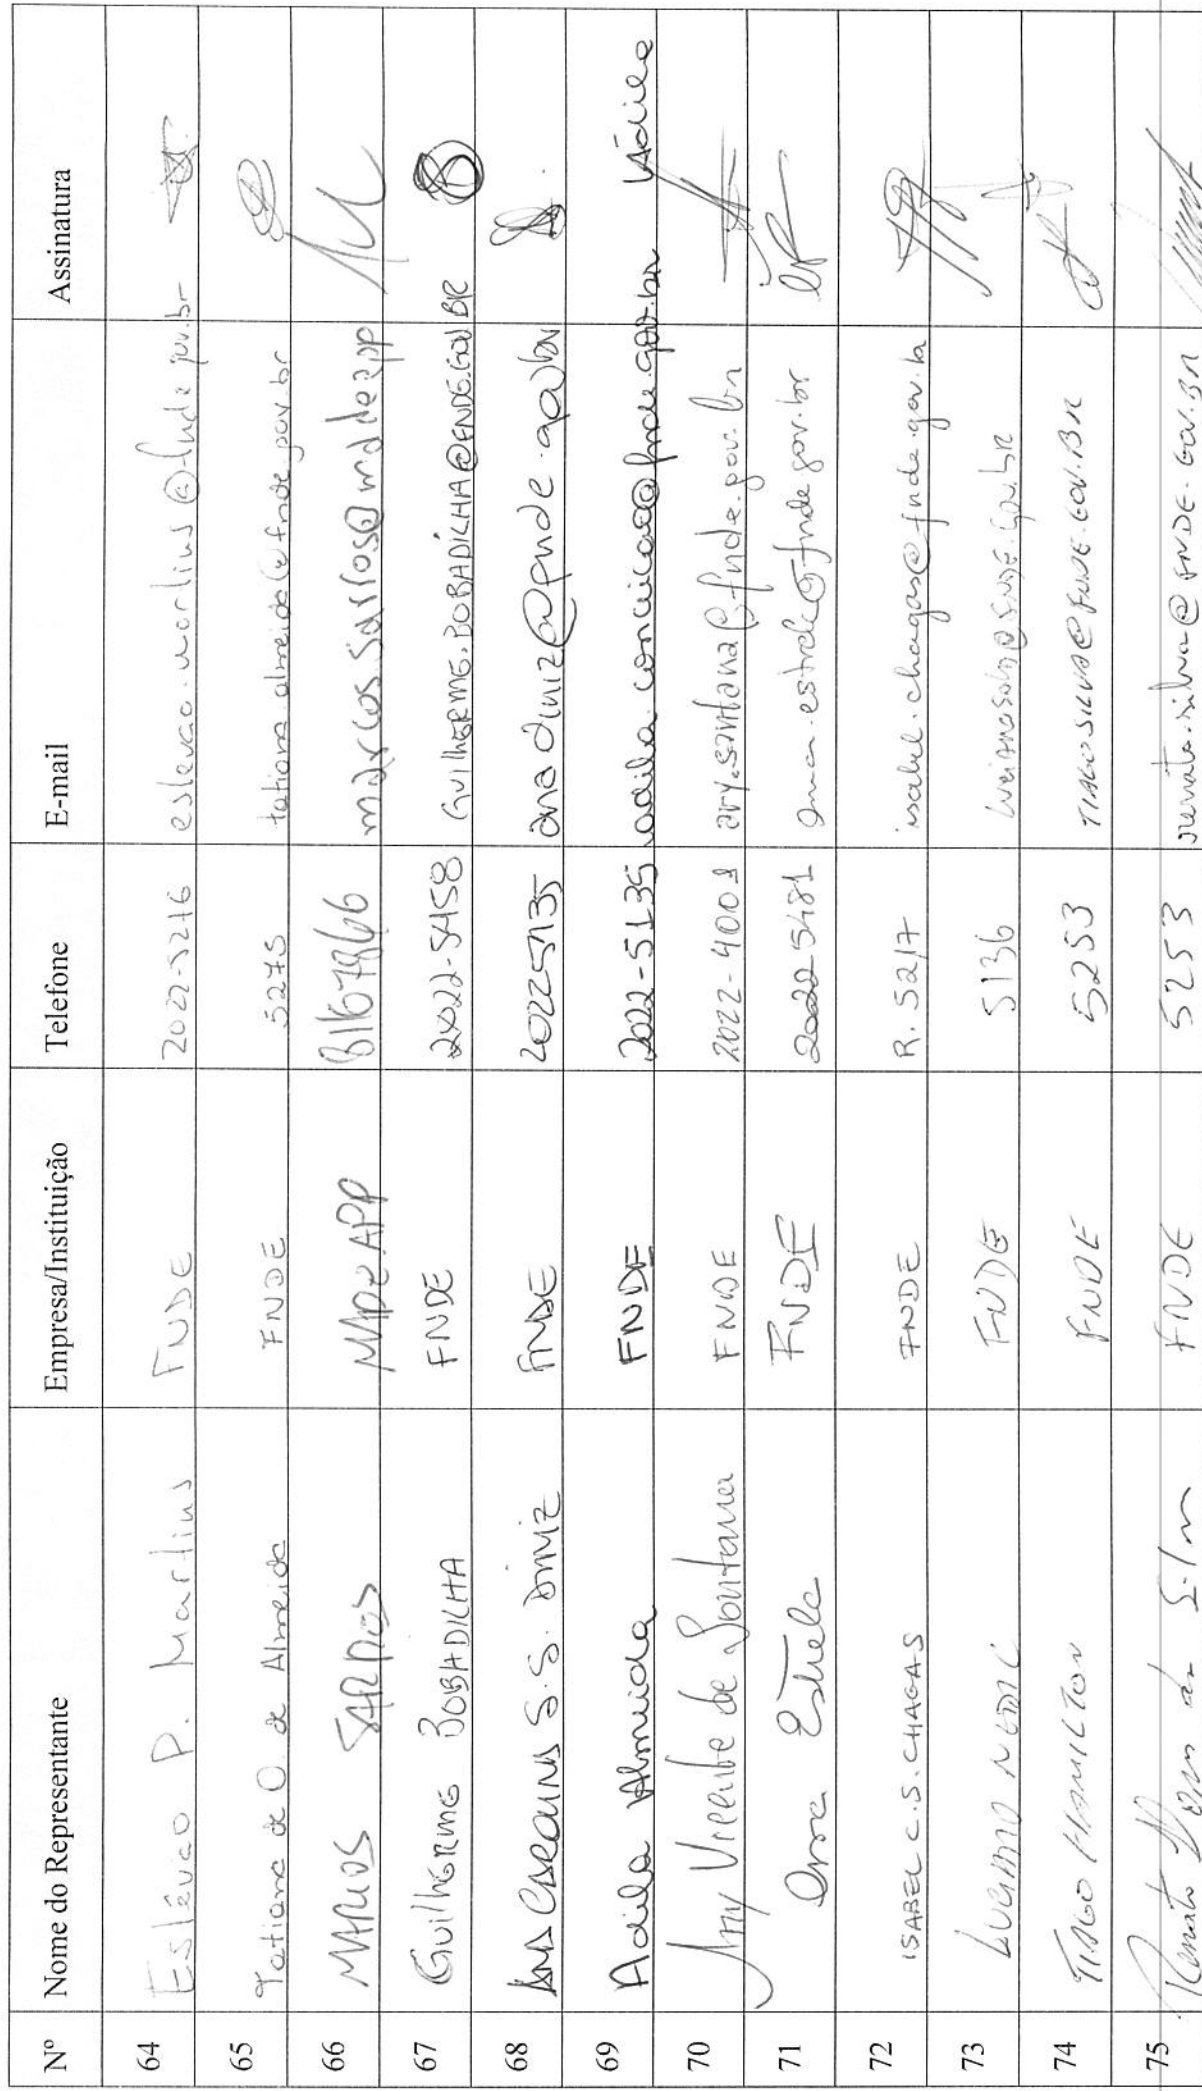 Nº Nome do Representante Empresa/Instituição Telefone E-mail Assinatura
64 Estêvao P. Martins FNDE 2022-5216 estevao.martins@fnde.gov.br
65 Tatiana de O. de Almeida FNDE 5275 tatiana.almeida@fnde.gov.br
66 MARCOS FNDE 81679866
67 GUILHERME BOBADILHA FNDE 2022-5458 GUILHERME.BOBADILHA@FNDE.GOV.BR
68 ANA CAROLINA S.S. DINIZ FNDE 20225135 ana.diniz@fnde.gov.br
69 Adila Almeida FNDE 2022-5135 adila.conceicao@fnde.gov.br
70 Ary Vicente de Santana FNDE 2022-4001 ary.santana@fnde.gov.br
71 Estrela FNDE 2022 5481
72 ISABEL C.S. CHAGAS FNDE R. 5217 isabel.chagas@fnde.gov.br
73 LUCIANO FNDE 5136
74 TIAGO HAMILTON FNDE 5253 TIAGO.SILVA@FNDE.GOV.BR
75 Renato FNDE 5253 renato.silva@FNDE.GOV.BR